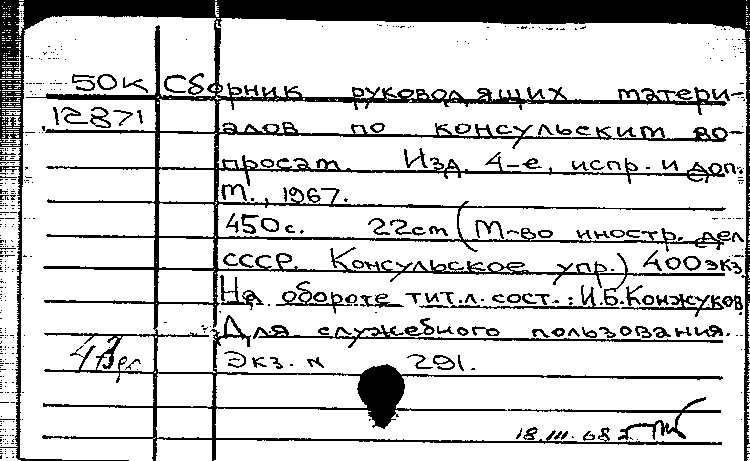 50К Сборник руководящих матери-
12871 алов по консульским во-
просам. Изд. 4-е, испр. и доп.
М., 1967.
450с. 22cm (М-во иностр. дел
СССР. Консульское упр.) 400экз.
На обороте тит.л. сост.: И.Б.Конжуков
Для служебного пользования.
Экз. N 291.
18.III.68г.